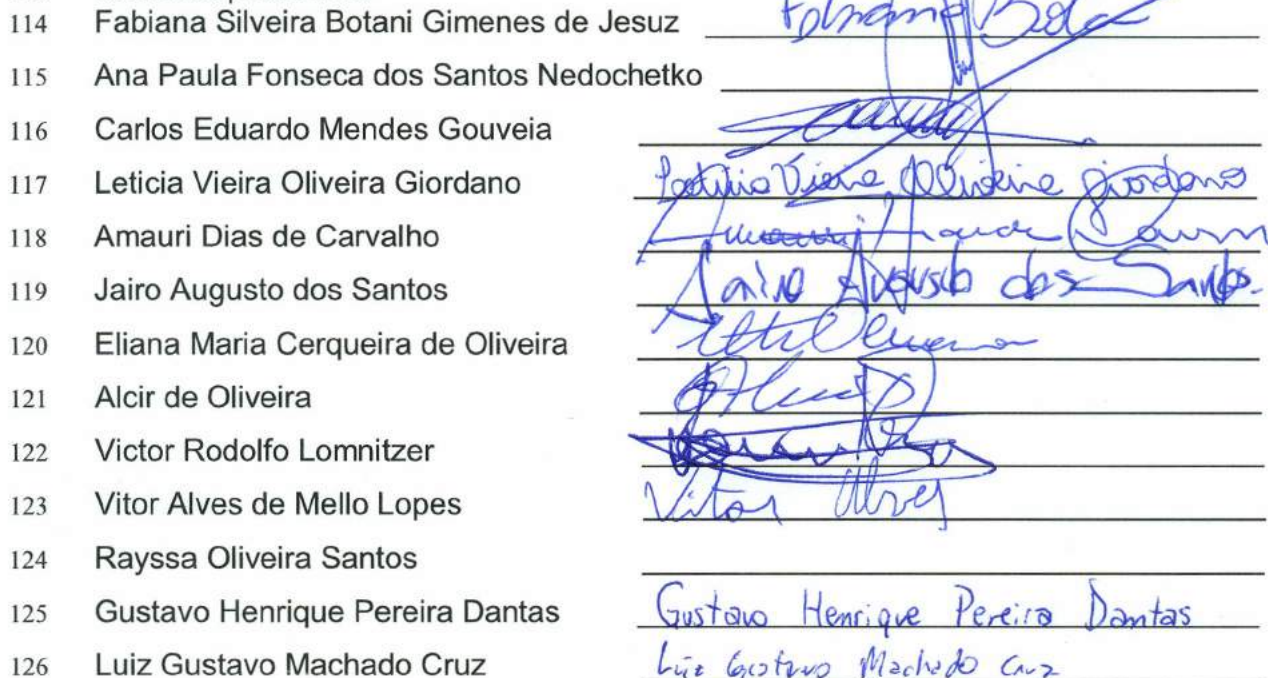 114 Fabiana Silveira Botani Gimenes de Jesuz
115 Ana Paula Fonseca dos Santos Nedochetko
116 Carlos Eduardo Mendes Gouveia
117 Leticia Vieira Oliveira Giordano Leticia Vieira Oliveira Giordano
118 Amauri Dias de Carvalho
119 Jairo Augusto dos Santos Jairo Augusto dos Santos.
120 Eliana Maria Cerqueira de Oliveira
121 Alcir de Oliveira
122 Victor Rodolfo Lomnitzer
123 Vitor Alves de Mello Lopes Vitor Alves
124 Rayssa Oliveira Santos
125 Gustavo Henrique Pereira Dantas Gustavo Henrique Pereira Dantas
126 Luiz Gustavo Machado Cruz Luiz Gustavo Machado Cruz